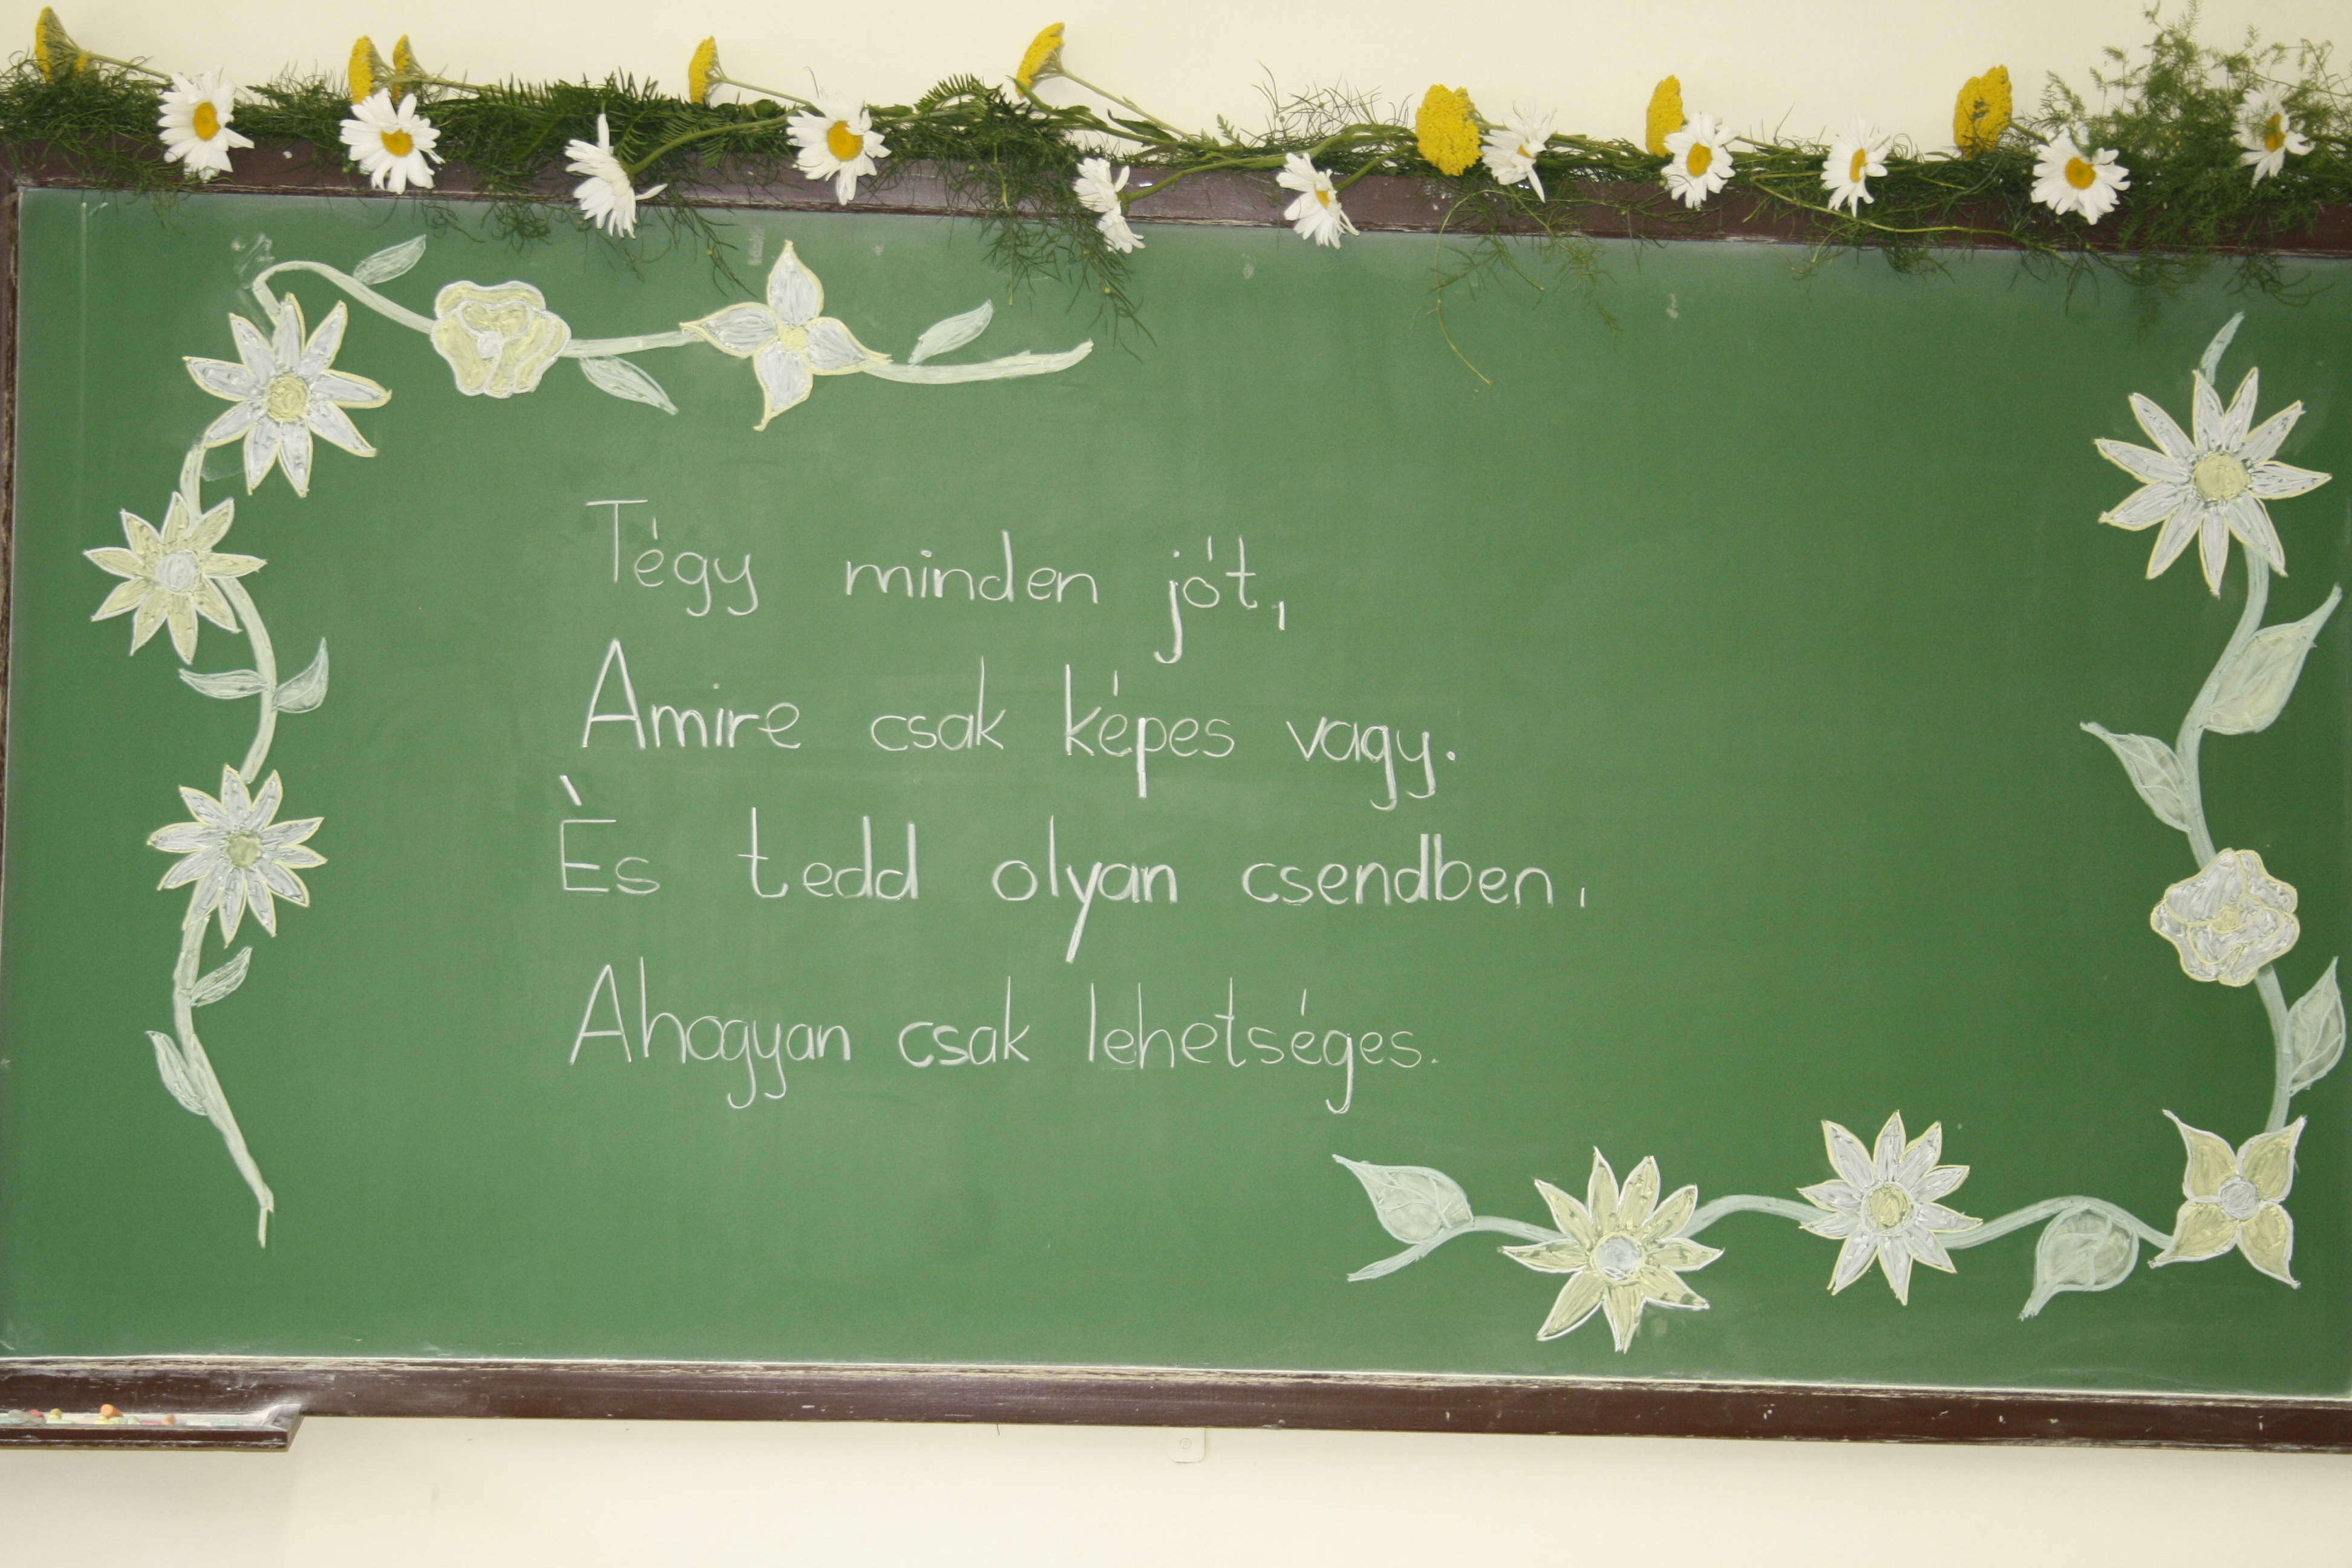 Tégy minden jót,
Amire csak képes vagy.
Ès tedd olyan csendben,
Ahogyan csak lehetséges.